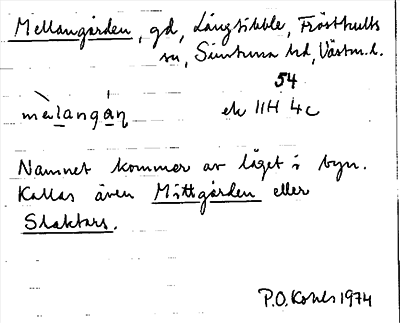 Mellangården, gd, Långtibble, Frösthults
sn, Simtuna hd, Västm.l.
54
mèlangán ek 11H 4c
Namnet kommer av läget i byn.
Kallas även Mittgården eller
Slaktars.
P.O. Kohls 1974